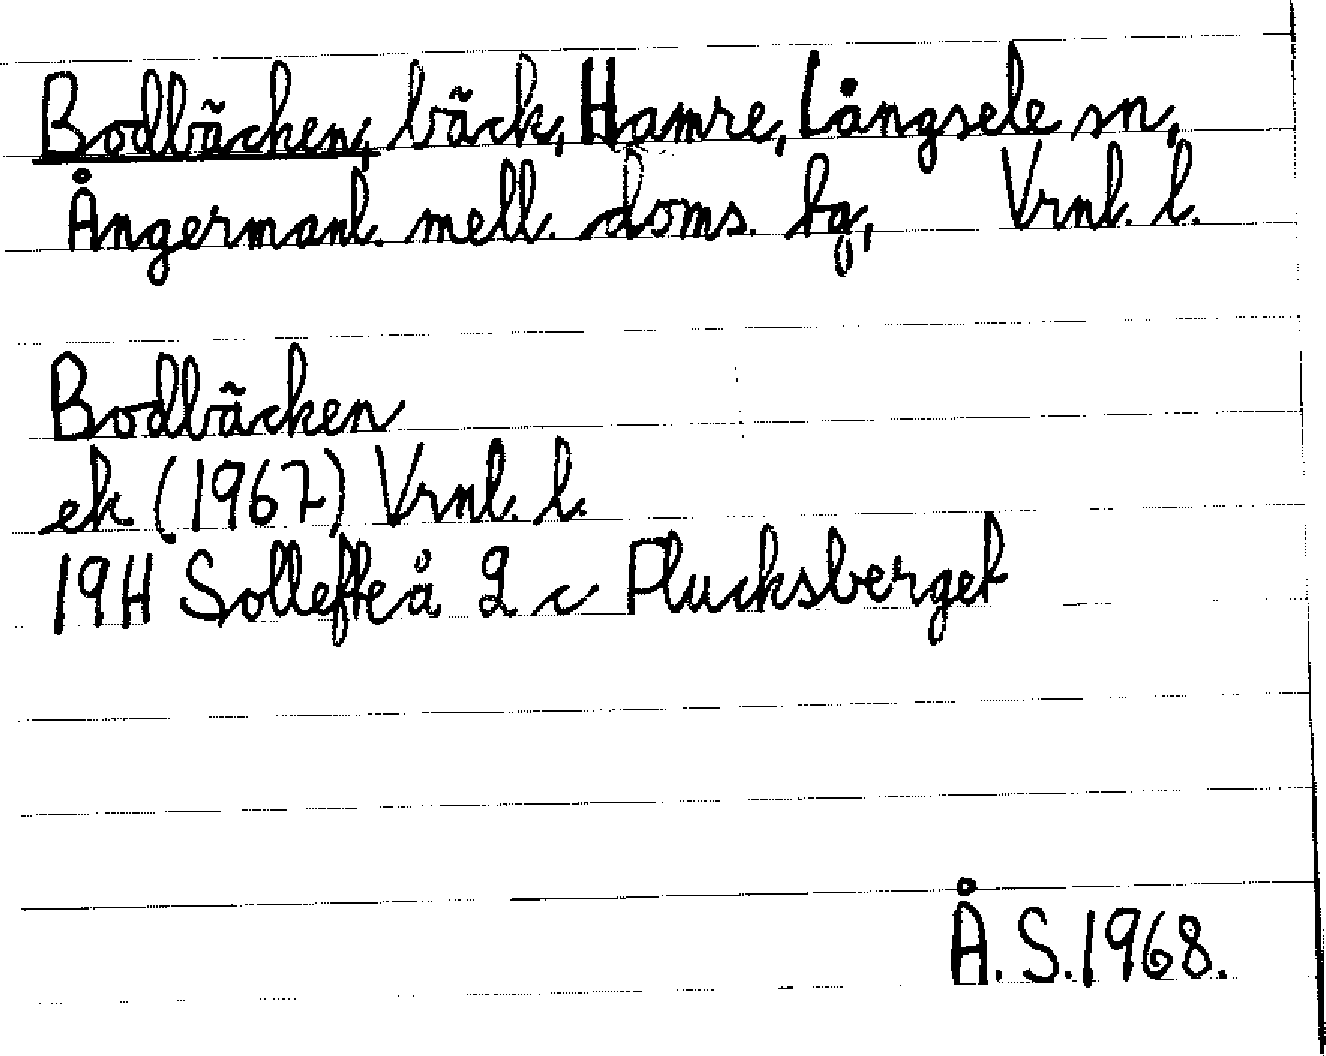 Bodbäcken, bäck, Hamre, Långsele sn,
Ångermanl. mell. doms. hg, Vrnl. l.
Bodbäcken
ek (1967) Vrnl. l.
19H Sollefteå 2 c Plucksberget
Å.S.1968.